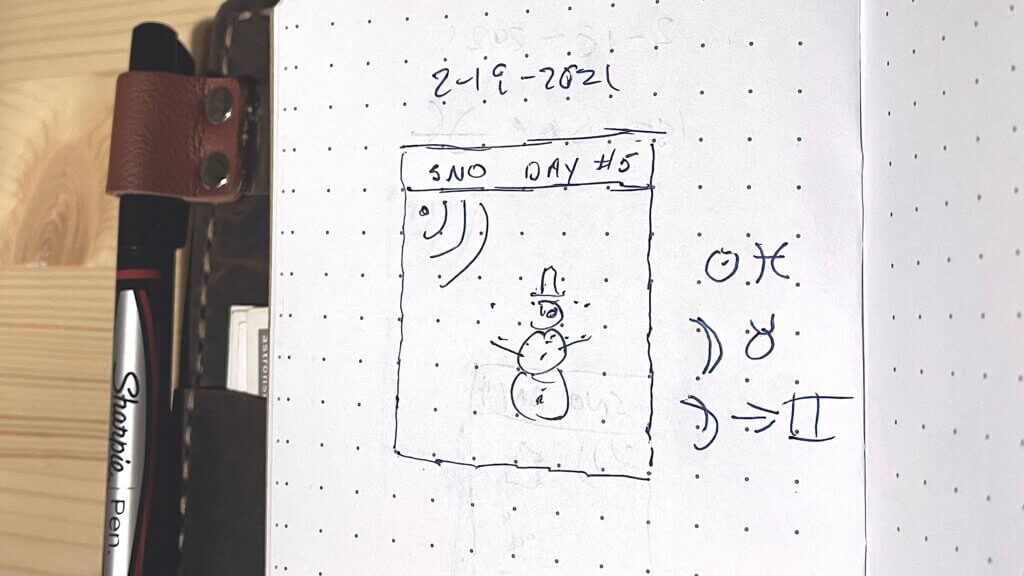 2-19-2021
SNO DAY #5
☉♓
☽♉
☽⇒♊
Sharpie | Pen.